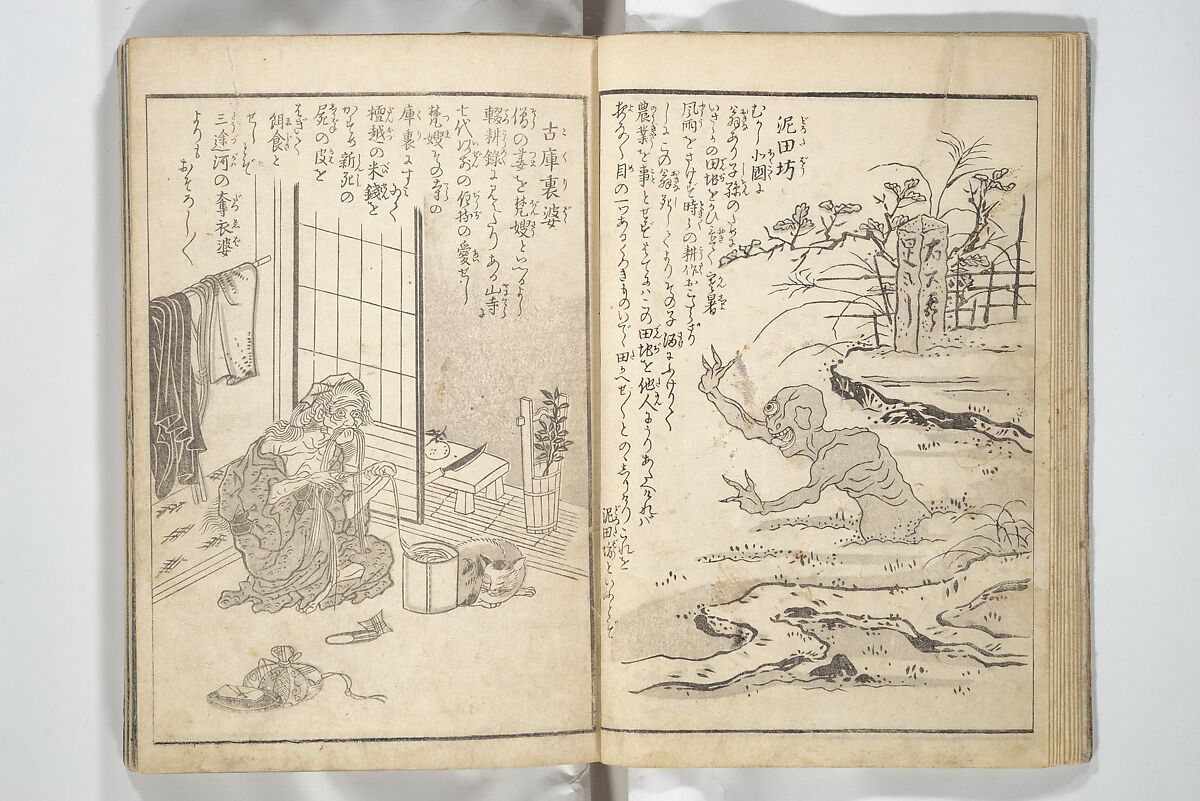 泥田坊
むかし北國に
翁あり子孫のために
いさゝかの田地をかひ置て寒暑
風雨をさけず時々の耕作おこたらざり
しにこの翁死してよりその子酒にふけりて
農業を事とせずはてにはこの田地を他人にうりあたへければ
夜な〳〵目の一つあるくろきものいでゝ田かへせ〳〵とのゝしりけりこれを
泥田坊といふとぞ
古庫裏婆
僧の妻を梵嫂といへるよし
輟耕録に見えたりある山寺に
七代以前の住持の愛せし
梵嫂その寺の
庫裏にすみゐて
檀越の米銭を
かすめ新死の
屍の皮を
はぎて
餌食と
せしとぞ
三途河の奪衣婆
よりもおそろし〳〵